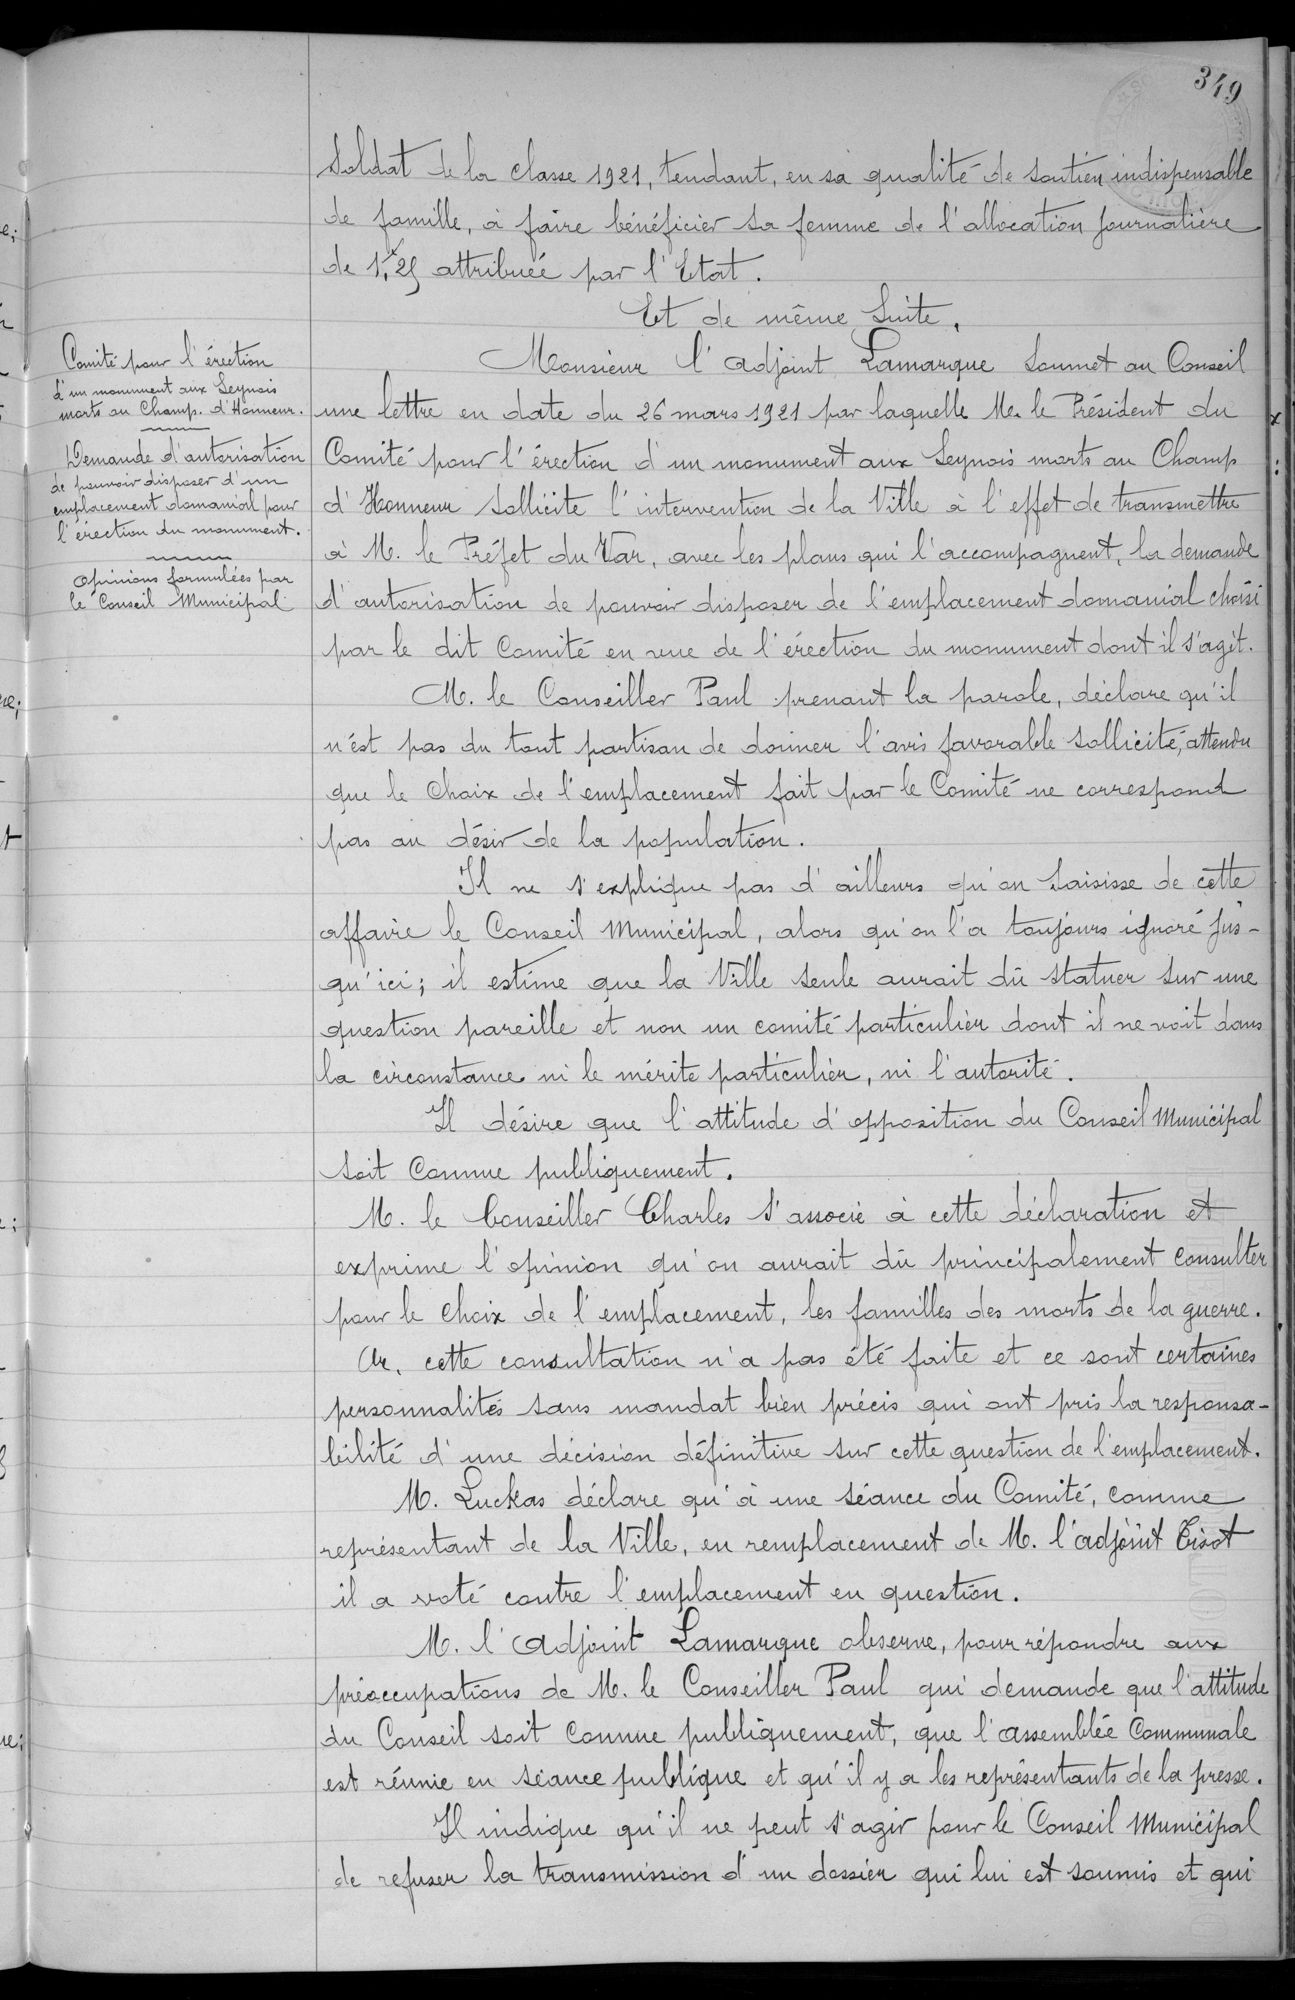 349
soldat de la classe 1921, tendant, en sa qualité de soutien indispensable
de famille, à faire bénéficier sa femme de l'allocation journalière
de 1,25 attribuée par l'Etat.
Et de même suite.
Comité pour l'érection
d'un monument aux Seynois
morts au Champ. d'Honneur.
Demande d'autorisation
de pouvoir disposer d'un
emplacement domanial pour
l'érection du monument.
Opinions formulées par
le Conseil Municipal
Monsieur l'adjoint Lamarque soumet au Conseil
une lettre en date du 26 mars 1921 par laquelle M. le Président du
Comité pour l'érection d'un monument aux Seynois morts au Champ
d'Honneur sollicite l'intervention de la Ville à l'effet de transmettre
à M. le Préfet du Var, avec les plans qui l'accompagnent, la demande
d'autorisation de pouvoir disposer de l'emplacement domanial choisi
par le dit Comité en vue de l'érection du monument dont il s'agit.
M. le Conseiller Paul prenant la parole, déclare qu'il
n'est pas du tout partisan de donner l'avis favorable sollicité, attendu
que le choix de l'emplacement fait par le Comité ne correspond
pas au désir de la population.
Il ne s'explique pas d'ailleurs qu'on saisisse de cette
affaire le Conseil Municipal, alors qu'on l'a toujours ignoré jus-
qu'ici; il estime que la Ville seule aurait dû statuer sur une
question pareille et non un comité particulier dont il ne voit dans
la circonstance ni le mérite particulier, ni l'autorité.
Il désire que l'attitude d'opposition du Conseil Municipal
soit connue publiquement.
M. le Conseiller Charles s'associe à cette déclaration et
exprime l'opinion qu'on aurait dû principalement consulter
pour le choix de l'emplacement, les familles des morts de la guerre.
Or, cette consultation n'a pas été faite et ce sont certaines
personnalités sans mandat bien précis qui ont pris la responsa-
bilité d'une décision définitive sur cette question de l'emplacement.
M. Luckas déclare qu'à une séance du Comité, comme
représentant de la Ville, en remplacement de M. l'adjoint Tisot
il a voté contre l'emplacement en question.
M. l'adjoint Lamarque observe, pour répondre aux
préoccupations de M. le Conseiller Paul qui demande que l'attitude
du Conseil soit connue publiquement, que l'assemblée Communale
est réunie en séance publique et qu'il y a les représentants de la presse.
Il indique qu'il ne peut s'agir pour le Conseil Municipal
de refuser la transmission d'un dossier qui lui est soumis et qui